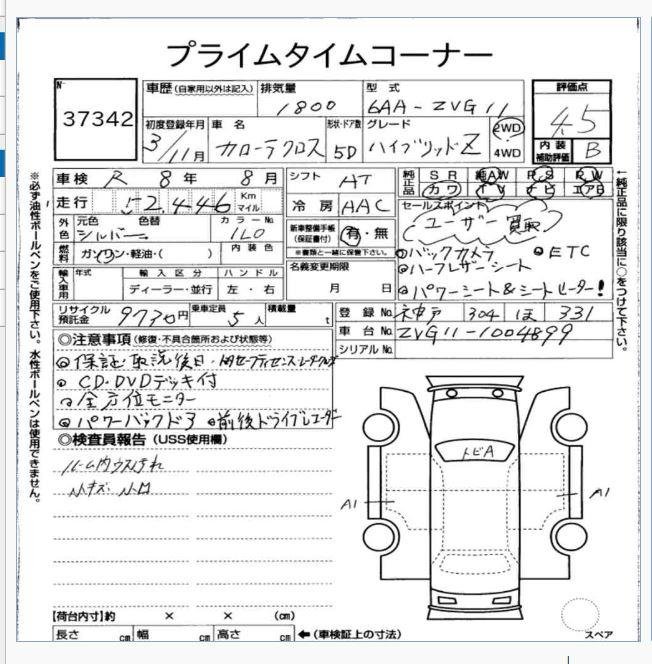 プライムタイムコーナー
No 37342
車歴 (自家用以外は記入) 排気量 1800 型式 6AA-ZVG11
評価点 4.5
初度登録年月 3/11月 車名 カローラクロス 形状・ドア数 5D グレード ハイブリッドZ 2WD 4WD
内装補助評価 B
車検 R 8年 8月 シフト AT 純正品 SR 純AW PS PW
カワ TV ナビ エアB
走行 52,446 Km マイル 冷房 AAC セールスポイント
ユーザー買取
外色 元色 シルバー 色替 カラーNo. 1L0
新車整備手帳(保証書付) 有・無
※書類と一緒に保管下さい。
燃料 ガソリン・軽油・( ) 内装色
バックカメラ ETC
ハーフレザーシート
パワーシート&シートヒーター!
輸入車用 年式 輸入区分 ハンドル
ディーラー・並行 左・右
名義変更期限 月 日
リサイクル預託金 9730円 乗車定員 5人 積載量 t
登録No. 神戸 304 は 331
車台No. ZVG11-1004899
シリアルNo.
◎注意事項 (修復・不具合箇所および状態等)
CD・DVDデッキ付
全方位モニター
パワーバックドア 前後ドライブレコーダー
◎検査員報告 (USS使用欄)
小キズ
トビA
A1
A1
【荷台内寸】約 × × (cm)
長さ cm 幅 cm 高さ cm ←(車検証上の寸法)
スペア
※必ず油性ボールペンをご使用下さい。水性ボールペンは使用できません。
←純正品に限り該当に○をつけて下さい。